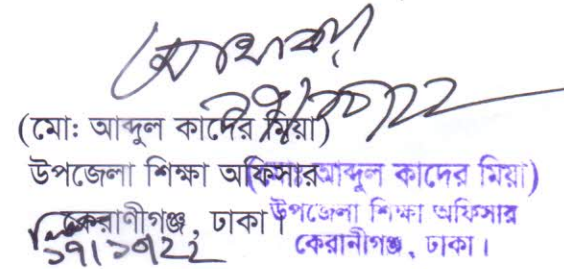 (মো: আব্দুল কাদের মিয়া)
উপজেলা শিক্ষা অফিসার
কেরাণীগঞ্জ, ঢাকা।
আব্দুল কাদের মিয়া)
উপজেলা শিক্ষা অফিসার
কেরানীগঞ্জ, ঢাকা।